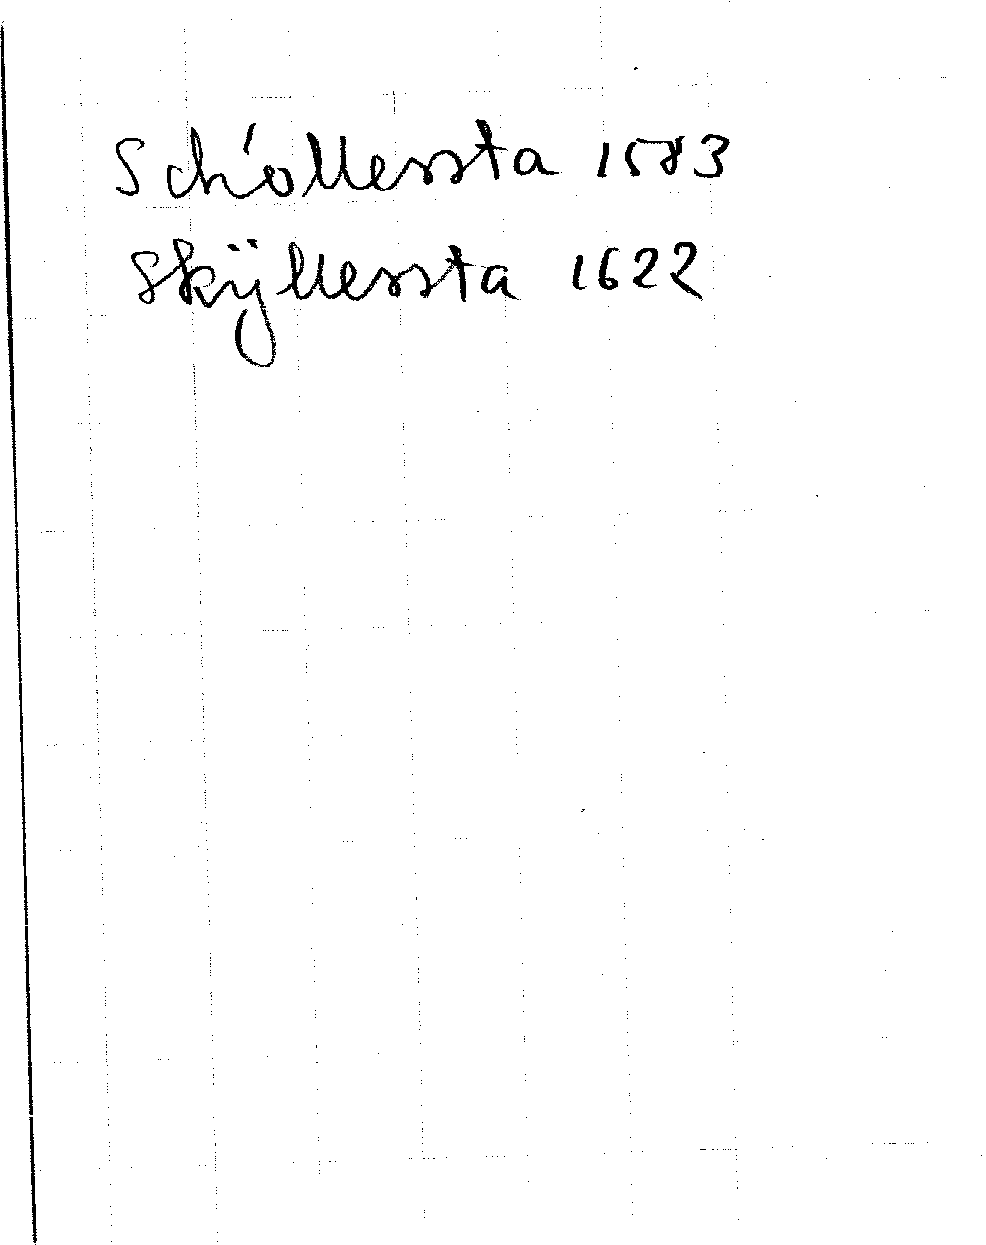 Schóllerssta 1583
Skÿllerssta 1622